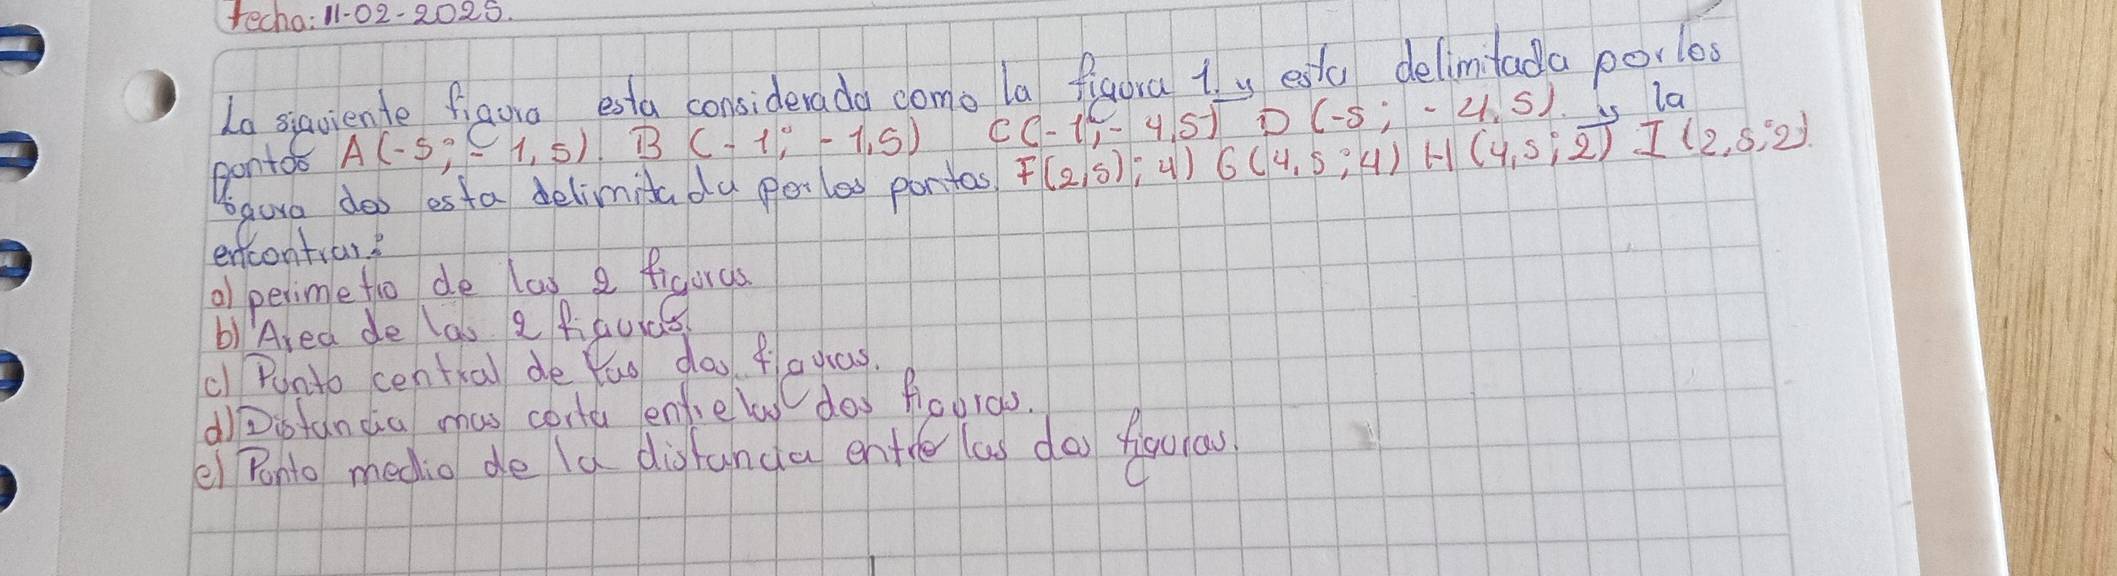 Fecha: 11-02-2025.
La siguiente figura esta considerada como la figura 1 y esta delimitada por los
puntos A(-5; -1,5). B (-1; -1,5) C(-1; -4,5) D (-5; -4,5). y la
figura dos esta delimitada por los puntos F(2,5); 4) G(4,5;4) H(4,5;2) I (2,5;2).
encontrar:
a) perimetro de las 2 figuras.
b) Area de las 2 figuras.
c) Punto central de las dos figuras.
d) Distancia mas corta entre las dos figuras.
e) Punto medio de la distancia entre las dos figuras.